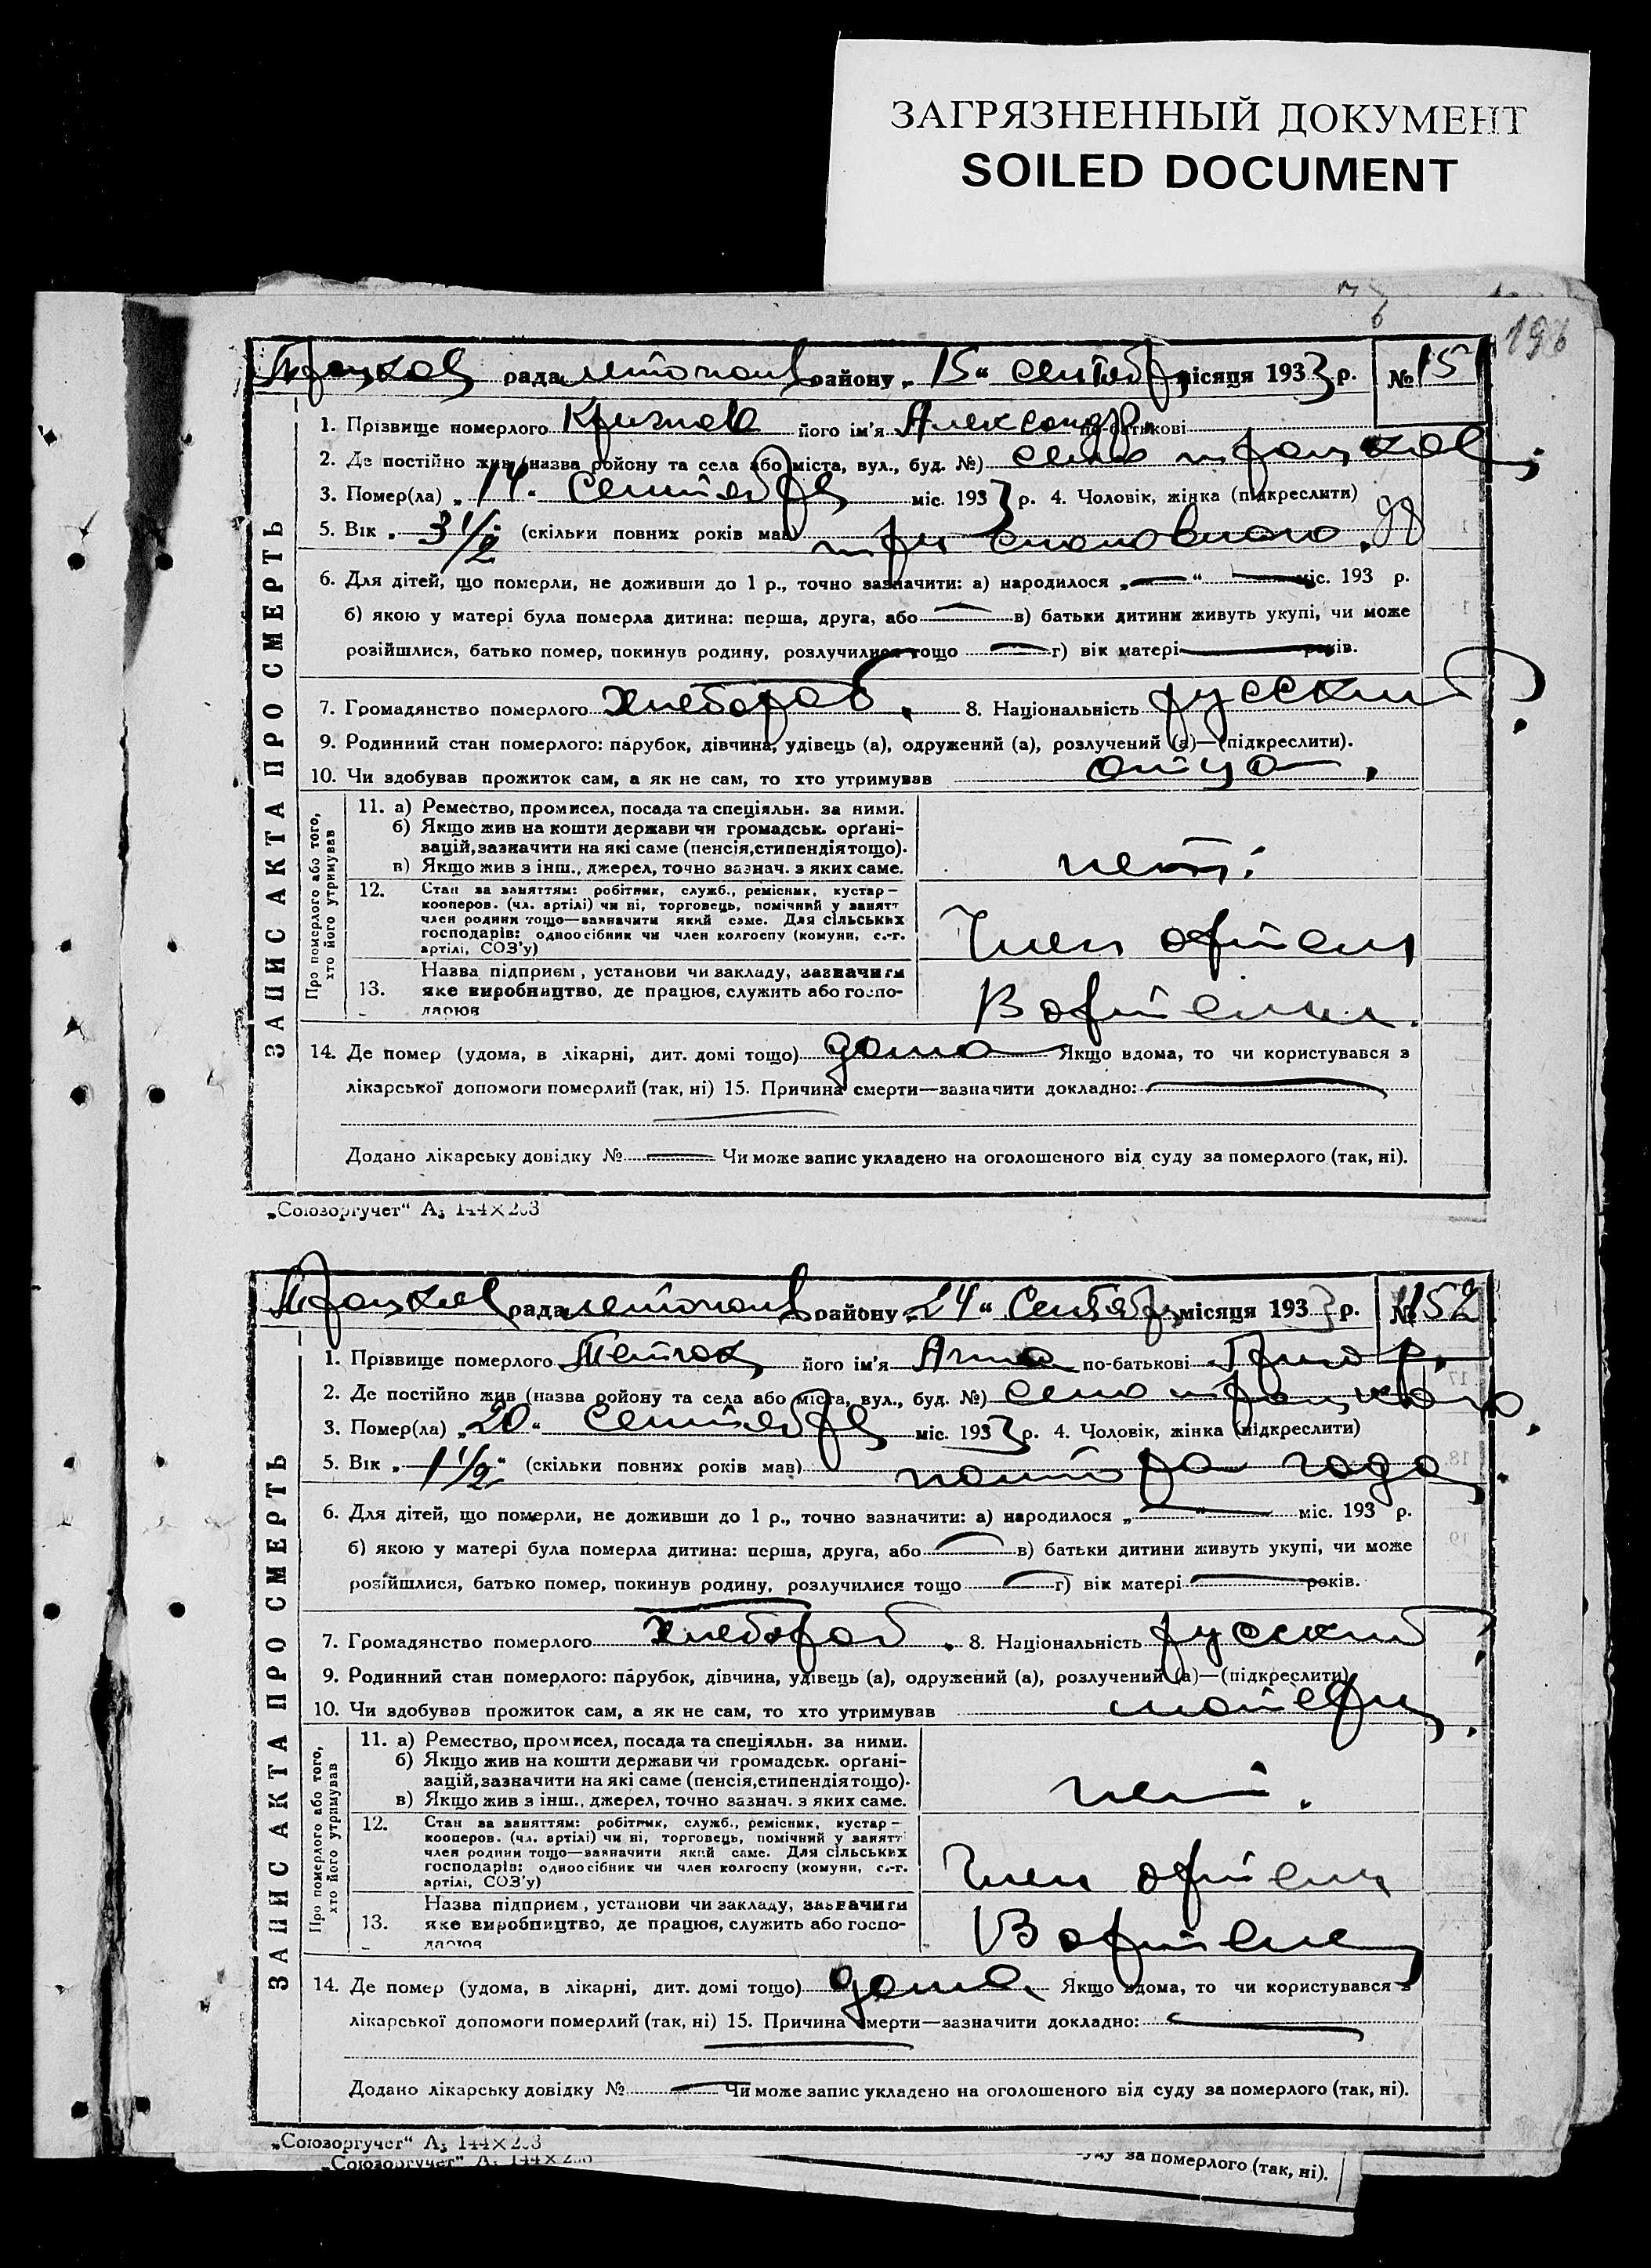 ЗАГРЯЗНЕННЫЙ ДОКУМЕНТ
SOILED DOCUMENT
196
рада району „15“ сентебря місяця 1933 р. № 151
ЗАПИС АКТА ПРО СМЕРТЬ
1. Прізвище померлого його ім'я Александр. по-батькові
2. Де постійно жив (назва району та села або міста, вул., буд. №) село
3. Помер(ла) „14“ Сентебре міс. 1933 р. 4. Чоловік, жінка (підкреслити)
5. Вік „3 1/2“ (скільки повних років мав) три
6. Для дітей, що померли, не доживши до 1 р., точно зазначити: а) народилося „—“ — міс. 193 р.
б) якою у матері була померла дитина: перша, друга, або — в) батьки дитини живуть укупі, чи може
розійшлися, батько помер, покинув родину, розлучилися тощо — г) вік матері — років.
7. Громадянство померлого хлебороб. 8. Національність русский ?
9. Родинний стан померлого: парубок, дівчина, удівець (а), одружений (а), розлучений (а)—(підкреслити).
10. Чи здобував прожиток сам, а як не сам, то хто утримував отца.
Про померлого або того, хто його утримував
11. а) Ремество, промисел, посада та спеціяльн. за ними.
б) Якщо жив на кошти держави чи громадськ. орґані-
зацій, зазначити на які саме (пенсія, стипендія тощо).
в) Якщо жив з інш., джерел, точно зазнач. з яких саме.
нет.
12. Стан за заняттям: робітник, служб., ремісник, кустар—
кооперов. (чл. артілі) чи ні, торговець, помічний у занятт
член родини тощо—зазначити який саме. Для сільських
господарів: одноосібник чи член колгоспу (комуни, с.-г.
артілі, СОЗ'у)
Член артели
13. Назва підприєм, установи чи закладу, зазначити
яке виробництво, де працює, служить або госпо-
дарює
Вартели.
14. Де помер (удома, в лікарні, дит. домі тощо) дома Якщо вдома, то чи користувався з
лікарської допомоги померлий (так, ні) 15. Причина смерти—зазначити докладно: —
Додано лікарську довідку № — Чи може запис укладено на оголошеного від суду за померлого (так, ні).
„Союзоргучет“ А₅ 144×203
рада району „24“ Сентебр місяця 1933 р. № 152
ЗАПИС АКТА ПРО СМЕРТЬ
1. Прізвище померлого його ім'я Анна по-батькові
2. Де постійно жив (назва району та села або міста, вул., буд. №) село
3. Помер(ла) „20“ Сентебре міс. 1933 р. 4. Чоловік, жінка (підкреслити)
5. Вік „1 1/2“ (скільки повних років мав) полтора года.
6. Для дітей, що померли, не доживши до 1 р., точно зазначити: а) народилося „—“ — міс. 193 р.
б) якою у матері була померла дитина: перша, друга, або — в) батьки дитини живуть укупі, чи може
розійшлися, батько помер, покинув родину, розлучилися тощо — г) вік матері — років.
7. Громадянство померлого хлебороб. 8. Національність русский
9. Родинний стан померлого: парубок, дівчина, удівець (а), одружений (а), розлучений (а)—(підкреслити)
10. Чи здобував прожиток сам, а як не сам, то хто утримував матери.
Про померлого або того, хто його утримував
11. а) Ремество, промисел, посада та спеціяльн. за ними.
б) Якщо жив на кошти держави чи громадськ. орґані-
зацій, зазначити на які саме (пенсія, стипендія тощо).
в) Якщо жив з інш., джерел, точно зазнач. з яких саме.
нет.
12. Стан за заняттям: робітник, служб., ремісник, кустар—
кооперов. (чл. артілі) чи ні, торговець, помічний у занятт
член родини тощо—зазначити який саме. Для сільських
господарів: одноосібник чи член колгоспу (комуни, с.-г.
артілі, СОЗ'у)
Член артели
13. Назва підприєм, установи чи закладу, зазначити
яке виробництво, де працює, служить або госпо-
дарює
Вартели
14. Де помер (удома, в лікарні, дит. домі тощо) дома Якщо вдома, то чи користувався з
лікарської допомоги померлий (так, ні) 15. Причина смерти—зазначити докладно: —
Додано лікарську довідку № — Чи може запис укладено на оголошеного від суду за померлого (так, ні).
„Союзоргучет“ А₅ 144×203
„Союзоргучет“ А₅ 144×203
суду за померлого (так, ні).